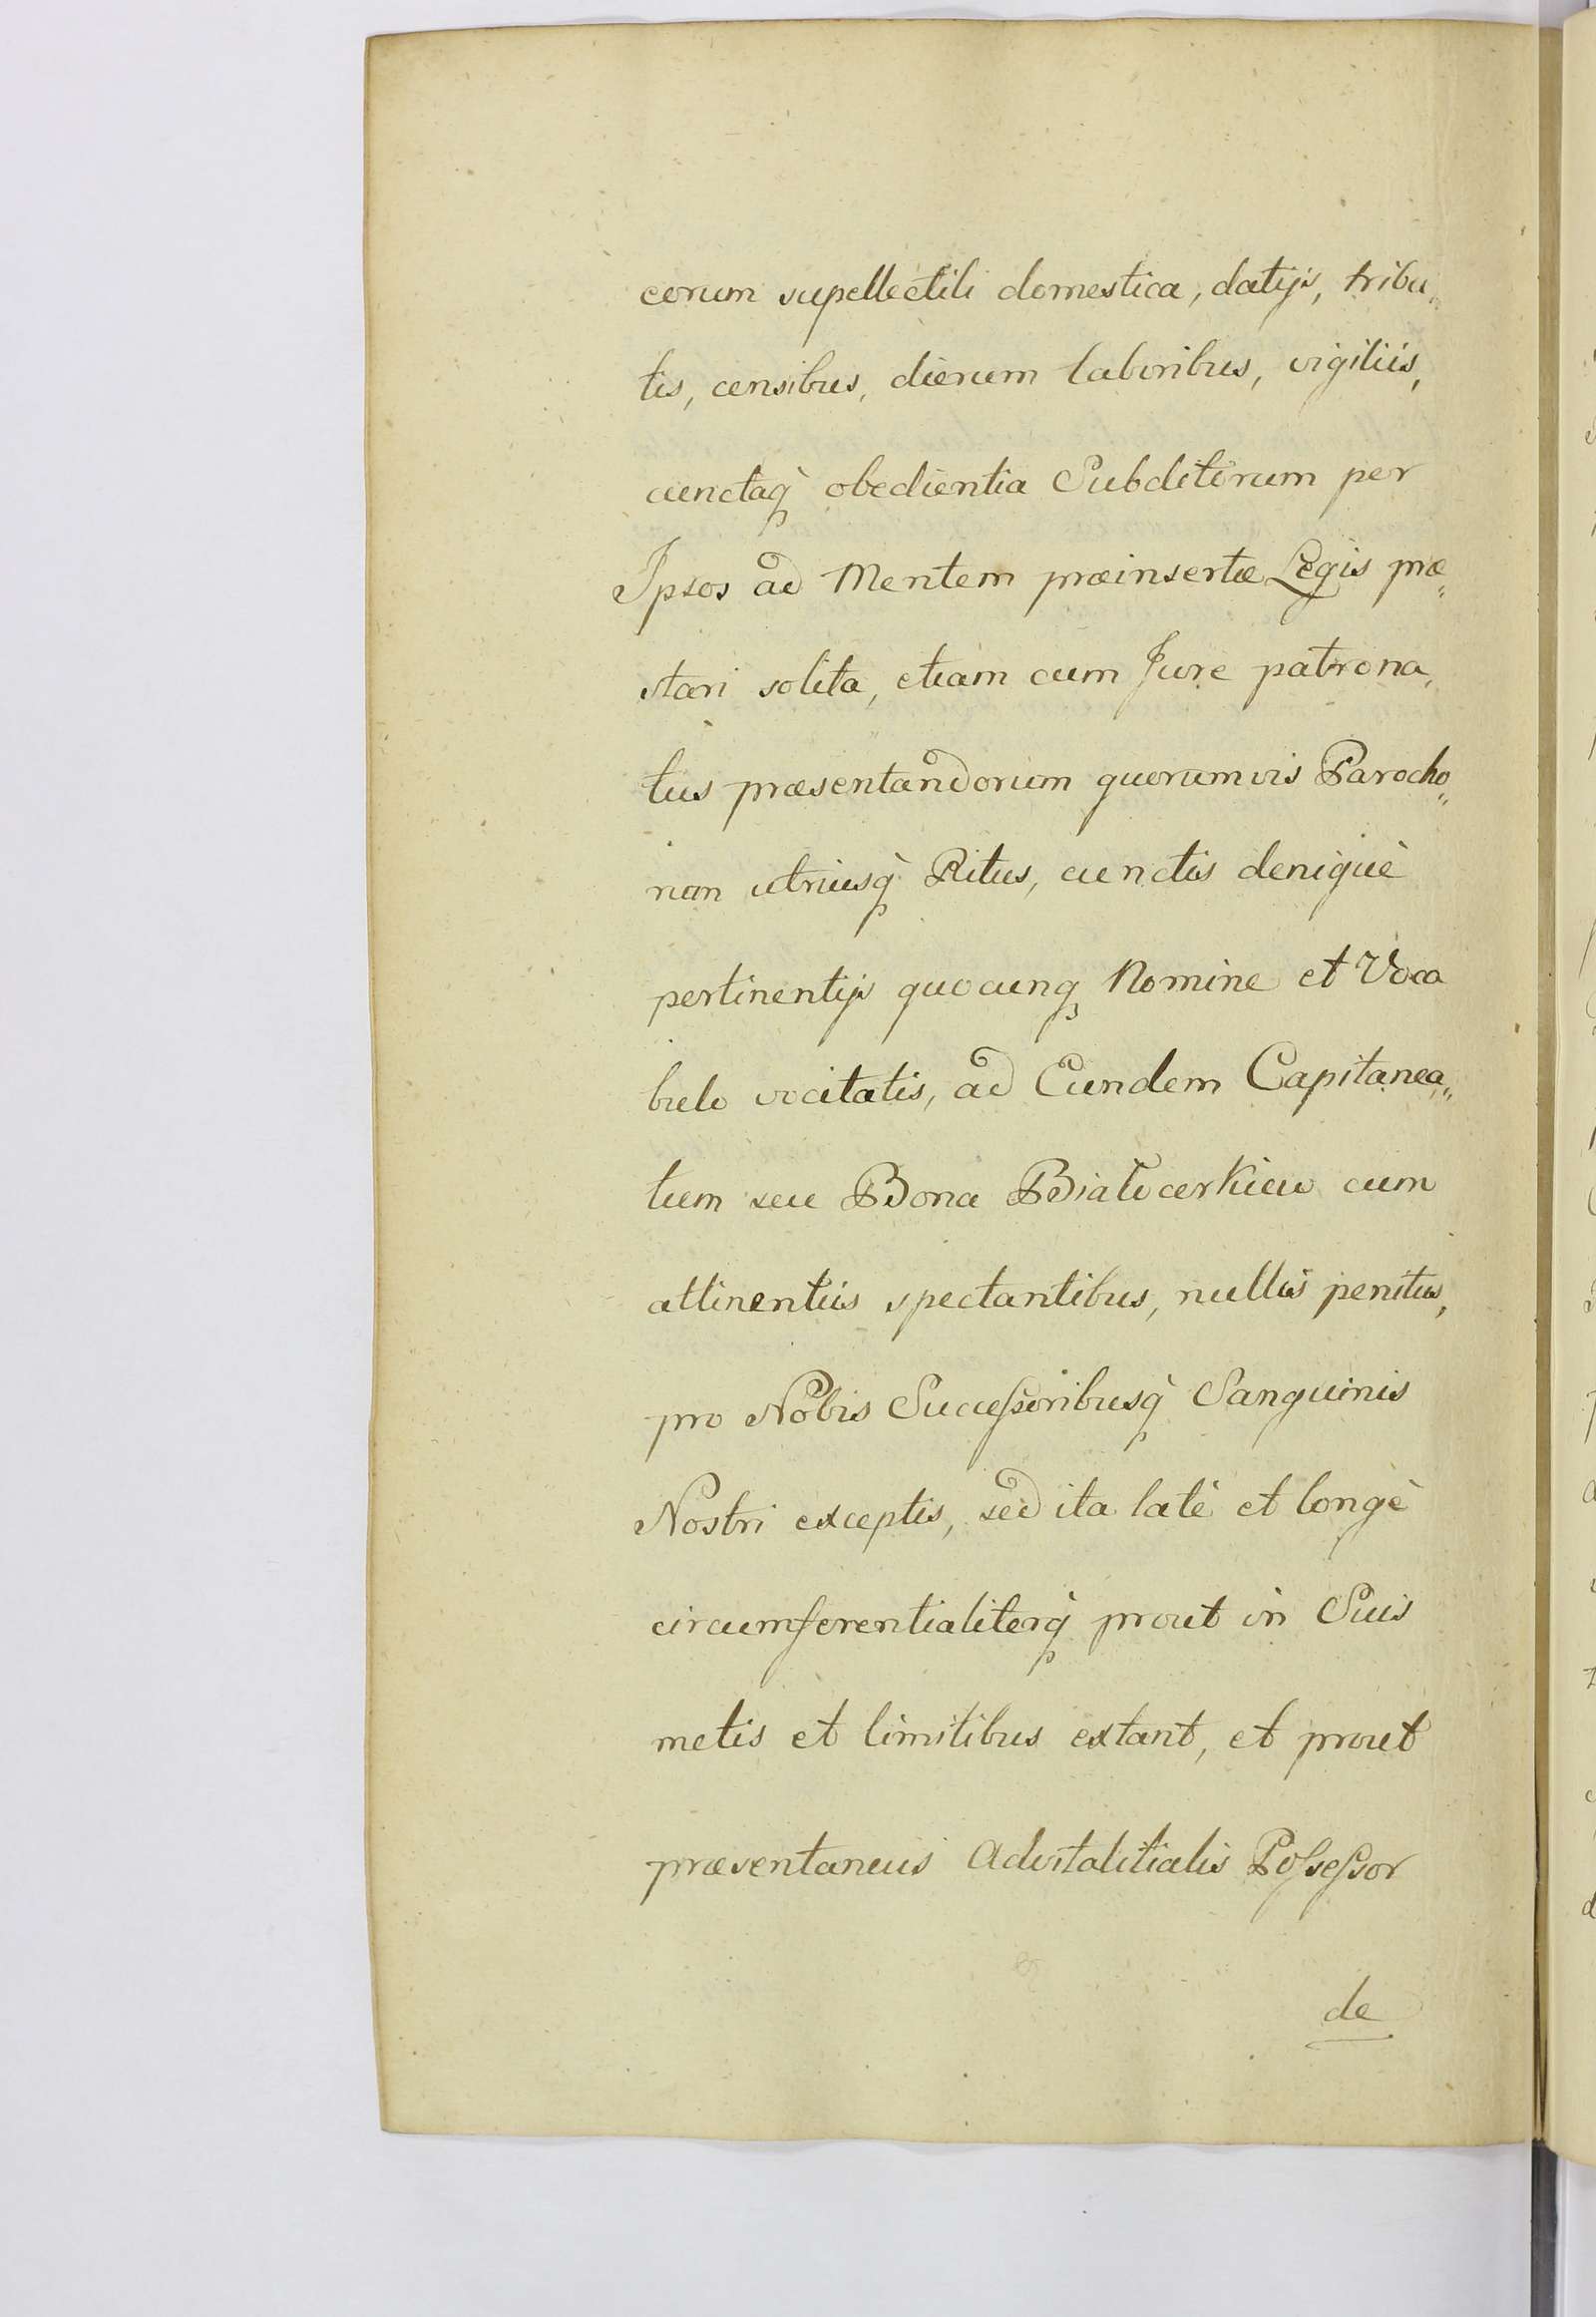 eorum supellectili domestica, datijs, tribu„
tis, censibus, dierum laboribus, vigiliis,
cunctaq̀ obedientia Subditorum per
Ipsos ad Mentem præinsertæ Legis præ„
stari solita, etiam cum Jure patrona„
tus præsentandorum quorumvis Parocho„
rum utriusq̀ Ritus, cunctis deniquè
pertinentijs quocunq Nomine et Voca
bulo vocitatis, ad Eundem Capitanea„
tum seu Bona Białocerkiew cum
attinentiis spectantibus, nullis penitus,
pro Nobis Succeſsoribusq̀ Sanguinis
Nostri exceptis, sed ita latè et longè
circumferentialiterq̀ prout in Suis
metis et limitibus extant, et prout
præsentaneus Advitalitialis Poſseſsor
de